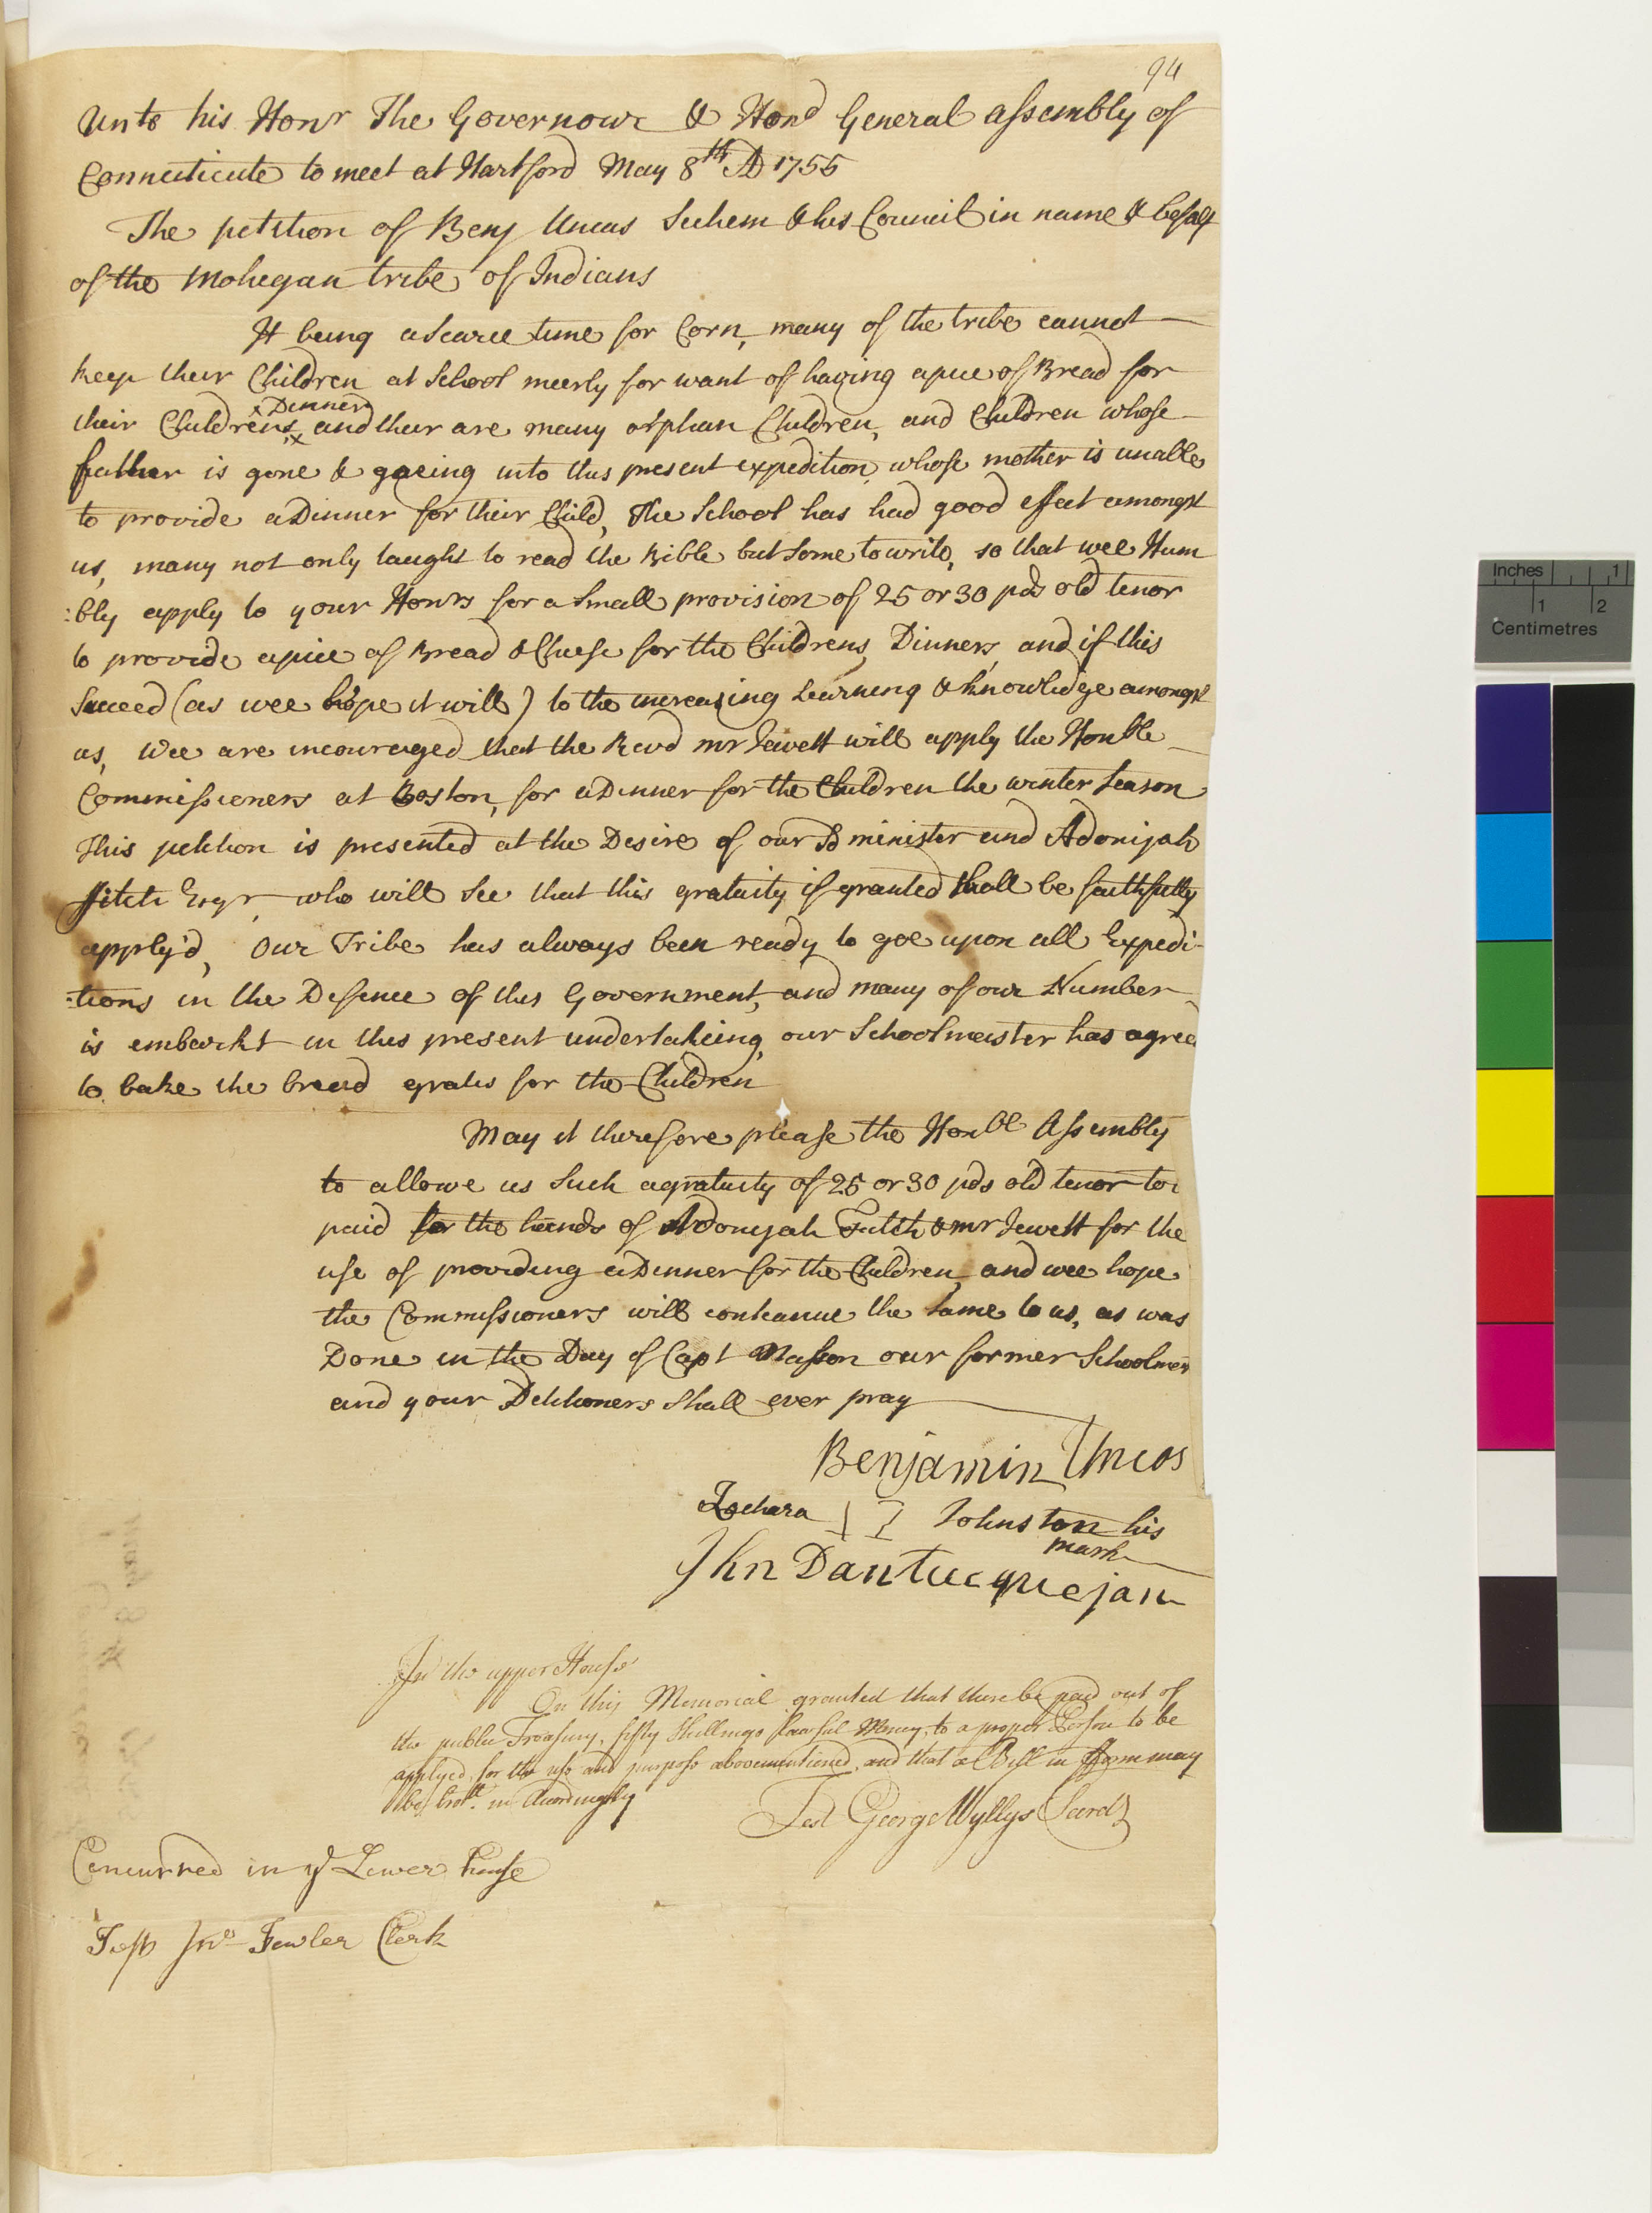 94
Unto his Honr The Governour & Hond General assembly of
Connecticute to meet at Hartford May 8th AD 1755
The petition of Benj Uncas Sechem & his Council in name & behalf
of the Mohegan tribe of Indians
It being a scarce time for Corn, many of the tribe cannot
keep their Children at School meerly for want of having a piece of Bread for
x Dinner
their Childrens,x and their are many orphan Children, and Children whose
father is gone & goeing into this present expedition, whose mother is unable
to provide a Dinner for their Child, The School has had good effect amongst
us, many not only taught to read the Bible but some to write, so that wee Hum
:bly apply to your Honrs for a small provision of 25 or 30 pds old tenor
to provide a piece of Bread & Cheese for the Childrens Dinners, and if this
Succeed (as wee hope it will) to the increasing Learning & knowledge amongst
us, Wee are incouraged that the Revd mr Jewett will apply the Honble
Commissioners at Boston, for a Dinner for the Children the winter Season
This petition is presented at the Desire of our sd minister and Adonijah
ffitch Esqr, who will See that this gratuity if granted shall be faithfully
apply'd, Our Tribe has always been ready to goe upon all Expedi-
:tions in the Defence of this Government, and many of our Number
is embarkt in this present undertakeing, our Schoolmaster has agreed
to bake the bread gratis for the Children
May it therefore please the Honble Assembly
to allowe us Such a gratuity of 25 or 30 pds old tenor to
paid for the hands of Adonijah Fitch & mr Jewett for the
use of providing a Dinner for the Children, and wee hope
the Commissioners will conteanue the same to us, as was
Done in the Day of Capt Masson our former Schoolmas
and your Petitioners shall ever pray
Benjamin Uncos
Zachara Johnston his
mark
Jhn Dantucquejan
In the upper House
On this Memorial granted that there be paid out of
the public Treasury, fifty Shillings Lawful Money, to a proper Person to be
applyed, for the use and purpose abovementioned, and that a Bill in fform may
be brott. in Accordingly
Test George Wyllys Secretʒ
Concurred in ye Lower house
Test Jno Fowler Clerk
Inches 1
1 2
Centimetres